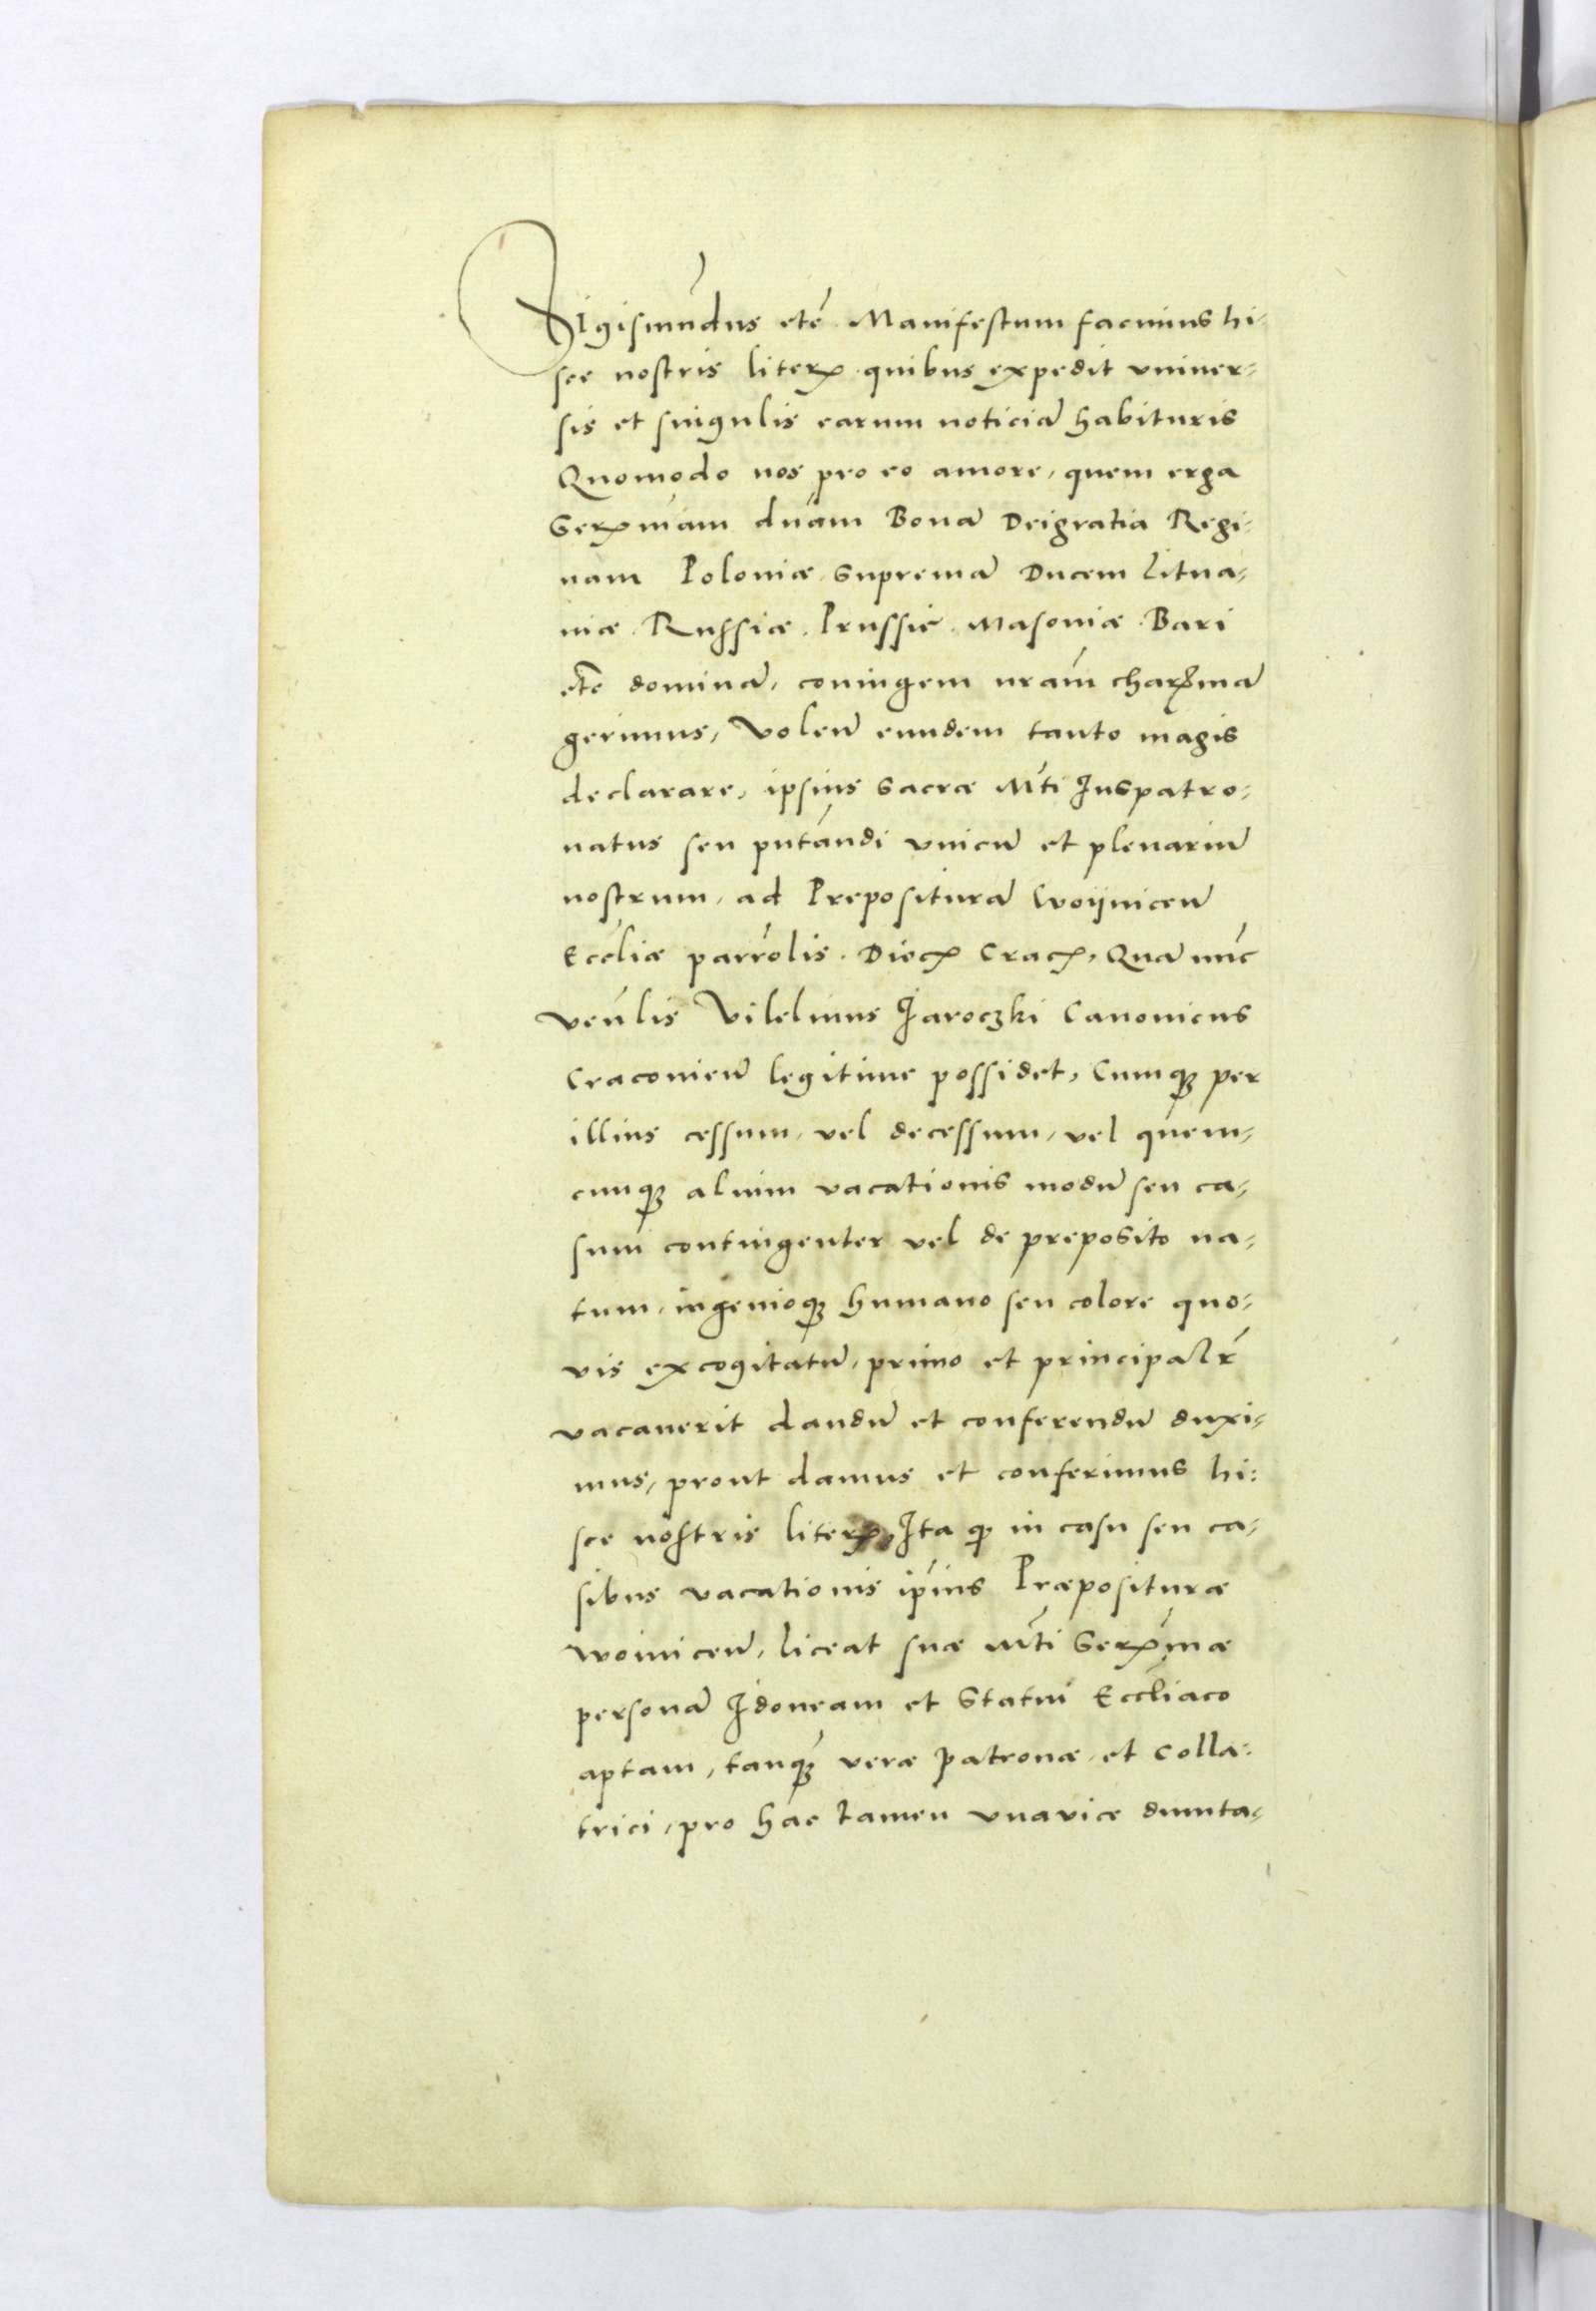 Sigismūdus etc̄ Manifestum facimus hi-
sce nostris literꝭ quibus expedit vniuer-
sis et singulis earum noticiā habituris
Quomodo nos pro eo amore, quem erga
Serꝭmam dnām Bonā Deigratia Regi-
nam Poloniæ Supremā Ducem Litua-
niæ. Russiæ. Prussie. Masoniæ. Bari
etc̄ dominā, coniugem nram̄ charꝭmā
gerimus, Volen̄ eundem tanto magis
declarare, ipsius Sacræ Mti Iuspatro-
natus seu pntāndi vnicū et plenariū
nostrum, ad Prepositurā Woijnicen̄
Eccliæ parrolis. Diocꝭ Cracꝭ, Quā nūc
Venlis Vilelmus Jaroczki Canonicus
Cracouien̄ legitime possidet, Cumqꝫ per
illius cessum, vel decessum, vel quem-
cunqꝫ alium vacationis modū seu ca-
sum contingenter vel de preposito na-
tum, ingenioqꝫ humano seu colore quo-
vis excogitatū, primo et principalr̄
vacauerit dandū et conferendū duxi-
mus, prout damus et conferimus hi-
sce nostris literꝭ, Ita qꝫ in casu seu ca-
sibus vacationis ipius Præposituræ
Woinicen̄, liceat suæ Mti Serꝭmæ
personā Idoneam et Statui Eccliaco
aptam, tanqꝫ veræ patronæ et Colla-
trici, pro hac tamen vnavice dumta-